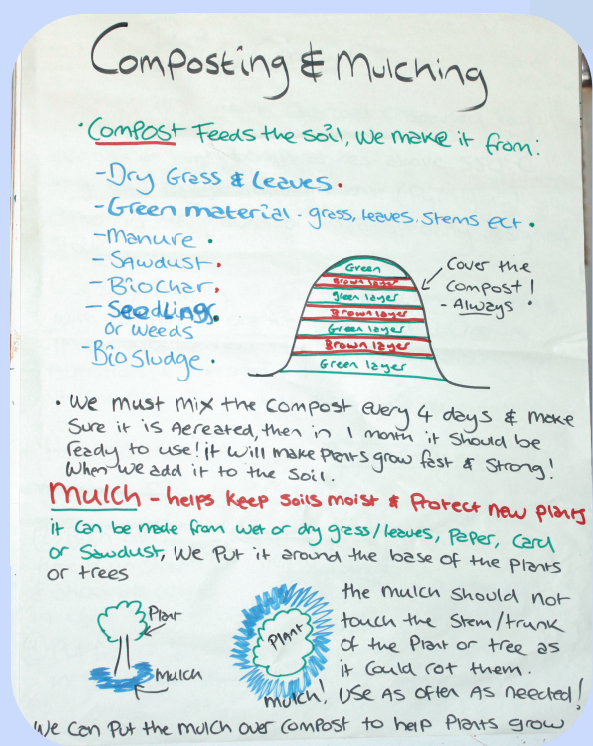 Composting & Mulching
• Compost Feeds the soil, we make it from:
- Dry Grass & Leaves •
- Green material - grass, leaves, stems ect •
- Manure •
- Sawdust •
- Biochar •
- Seedlings •
or weeds
- Bio Sludge •
Green
Brown layer
green layer
Brown layer
Green layer
Brown layer
Green layer
Cover the
compost!
- Always •
• We must mix the compost every 4 days & make
sure it is Aereated, then in 1 month it should be
ready to use! it will make plants grow fast & strong!
when we add it to the soil.
Mulch - helps keep soils moist & Protect new plants
it can be made from wet or dry grass/leaves, Paper, Card
or Sawdust, We Put it around the base of the plants
or trees
Plant
Mulch
Plant
mulch!
the mulch should not
touch the stem/trunk
of the Plant or tree as
it could rot them.
Use As often As needed!
We can Put the mulch over compost to help Plants grow